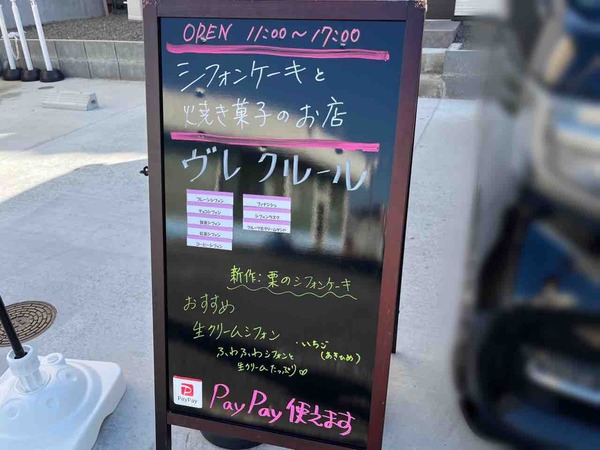 OPEN 11:00～17:00
シフォンケーキと
焼き菓子のお店
ヴレ クルール
プレーンシフォン
チョコシフォン
抹茶シフォン
紅茶シフォン
コーヒーシフォン
フィナンシェ
シフォンラスク
フルーツ生クリームサンド
新作:栗のシフォンケーキ
おすすめ
生クリームシフォン
ふわふわシフォンと
生クリームたっぷり♡
・いちご
(あきひめ)
PayPay
PayPay 使えます